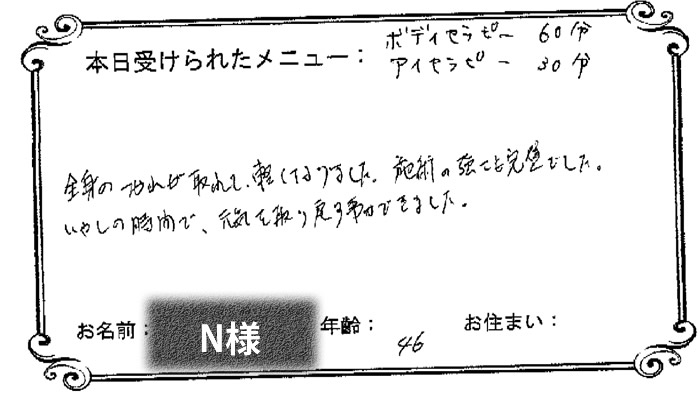 本日受けられたメニュー： ボディセラピー 60分
アイセラピー 30分
全身の疲れが取れて、軽くなりました。施術の強さも完璧でした。
いやしの時間で、元気を取り戻す事ができました。
お名前： N様 年齢： 46 お住まい：